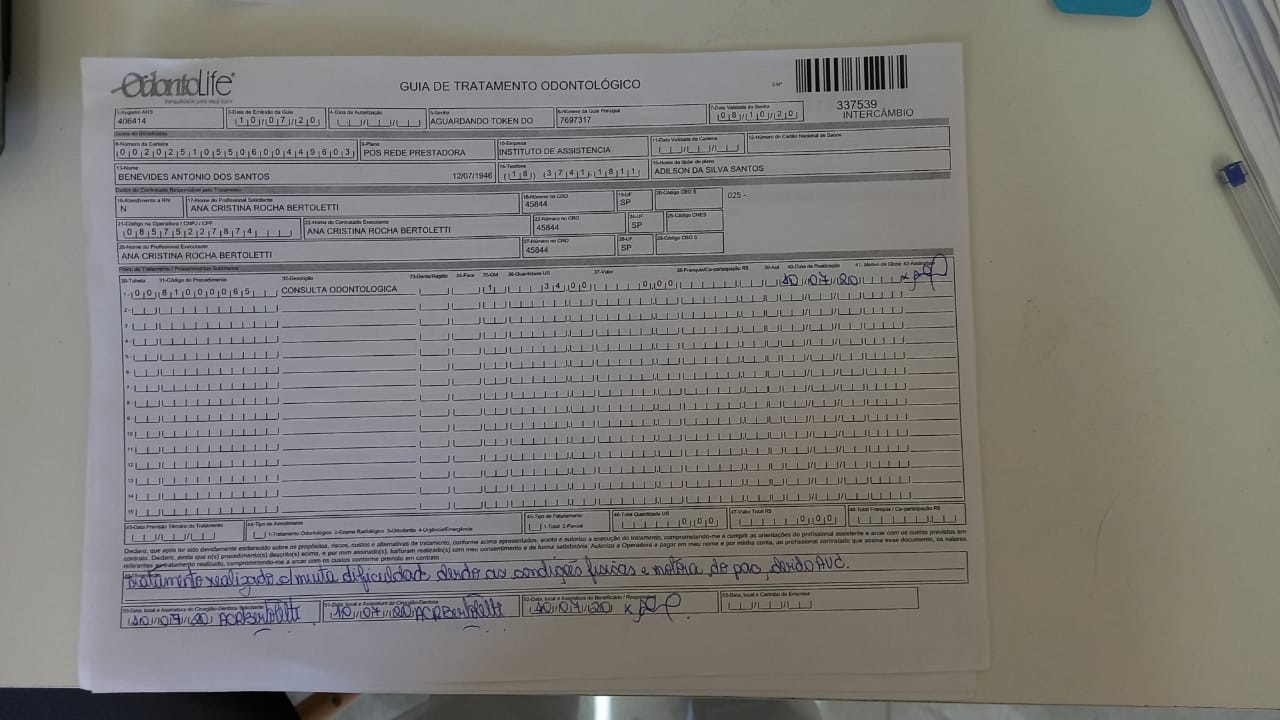 OdontoLife
tranquilidade para você sorrir
GUIA DE TRATAMENTO ODONTOLÓGICO
337539
INTERCÂMBIO
1-Registro ANS
406414
3-Data de Emissão da Guia
10/07/20
4-Data de Autorização
5-Senha
AGUARDANDO TOKEN DO
6-Número da Guia Principal
7697317
7-Data Validade da Senha
08/10/20
Dados do Beneficiário
8-Número da Carteira
00202510550600449603
9-Plano
POS REDE PRESTADORA
10-Empresa
INSTITUTO DE ASSISTENCIA
11-Data Validade da Carteira
12-Número do Cartão Nacional de Saúde
13-Nome
BENEVIDES ANTONIO DOS SANTOS 12/07/1946
14-Telefone
(18) 3741-1811
15-Nome do titular do plano
ADILSON DA SILVA SANTOS
Dados do Contratado Responsável pelo Tratamento
16-Atendimento a RN
N
17-Nome do Profissional Solicitante
ANA CRISTINA ROCHA BERTOLETTI
18-Número no CRO
45844
19-UF
SP
20-Código CBO S
025 -
21-Código na Operadora / CNPJ / CPF
08575227874
22-Nome do Contratado Executante
ANA CRISTINA ROCHA BERTOLETTI
23-Número no CRO
45844
24-UF
SP
25-Código CNES
26-Nome do Profissional Executante
ANA CRISTINA ROCHA BERTOLETTI
27-Número no CRO
45844
28-UF
SP
29-Código CBO S
Plano de Tratamento / Procedimentos Solicitados
30-Tabela 31-Código do Procedimento 32-Descrição 33-Dente/Região 34-Face 35-Qtd 36-Quantidade US 37-Valor 38-Franquia/Co-participação R$ 39-Aut 40-Data de Realização 41- Motivo da Glosa 42-Assinatura
1- 00 81000065 CONSULTA ODONTOLOGICA 1 34,00 0,00 10/07/20
2-
3-
4-
5-
6-
7-
8-
9-
10-
11-
12-
13-
14-
15-
43-Data Previsão Término do Tratamento
44-Tipo de Atendimento
1-Tratamento Odontológico 2-Exame Radiológico 3-Ortodontia 4-Urgência/Emergência
45-Tipo de Faturamento
1-Total 2-Parcial
46-Total Quantidade US
0,00
47-Valor Total R$
0,00
48-Total Franquia / Co-participação R$
Declaro, que após ter sido devidamente esclarecido sobre os propósitos, riscos, custos e alternativas de tratamento, conforme acima apresentados, aceito e autorizo a execução do tratamento, comprometendo-me a cumprir as orientações do profissional assistente e arcar com os custos previstos em
contrato. Declaro, ainda que o(s) procedimento(s) descrito(s) acima, e por mim assinado(s), foi/foram realizado(s) com meu consentimento e de forma satisfatória. Autorizo a Operadora a pagar em meu nome e por minha conta, ao profissional contratado que assina esse documento, os valores
referentes ao tratamento realizado, comprometendo-me a arcar com os custos conforme previsto em contrato.
Tratamento realizado c/muita dificuldade devido as condições físicas e motora do pac, devido AVC.
50-Data, local e Assinatura do Cirurgião-Dentista Solicitante
10/07/20 ACRBertoletti
51-Data, local e Assinatura do Cirurgião-Dentista
10/07/20 ACRBertoletti
52-Data, local e Assinatura do Beneficiário / Responsável
10/07/20
53-Data, local e Carimbo da Empresa